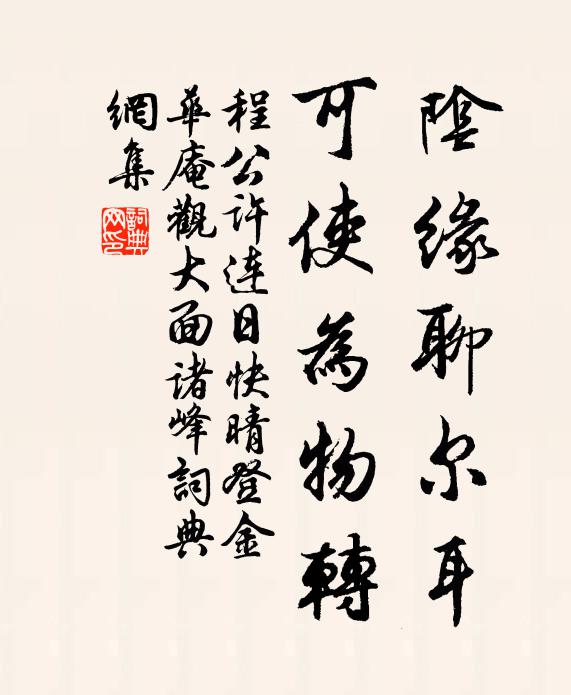 陰緣聊尔耳
可使為物轉
程公許連日快晴登金
華庵觀大面諸峰詞典
網集
詞典网印